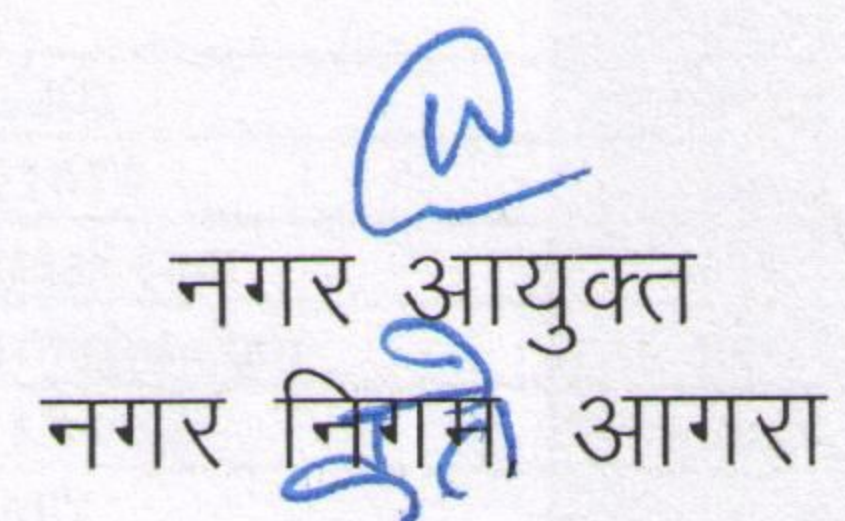 नगर आयुक्त
नगर निगम, आगरा